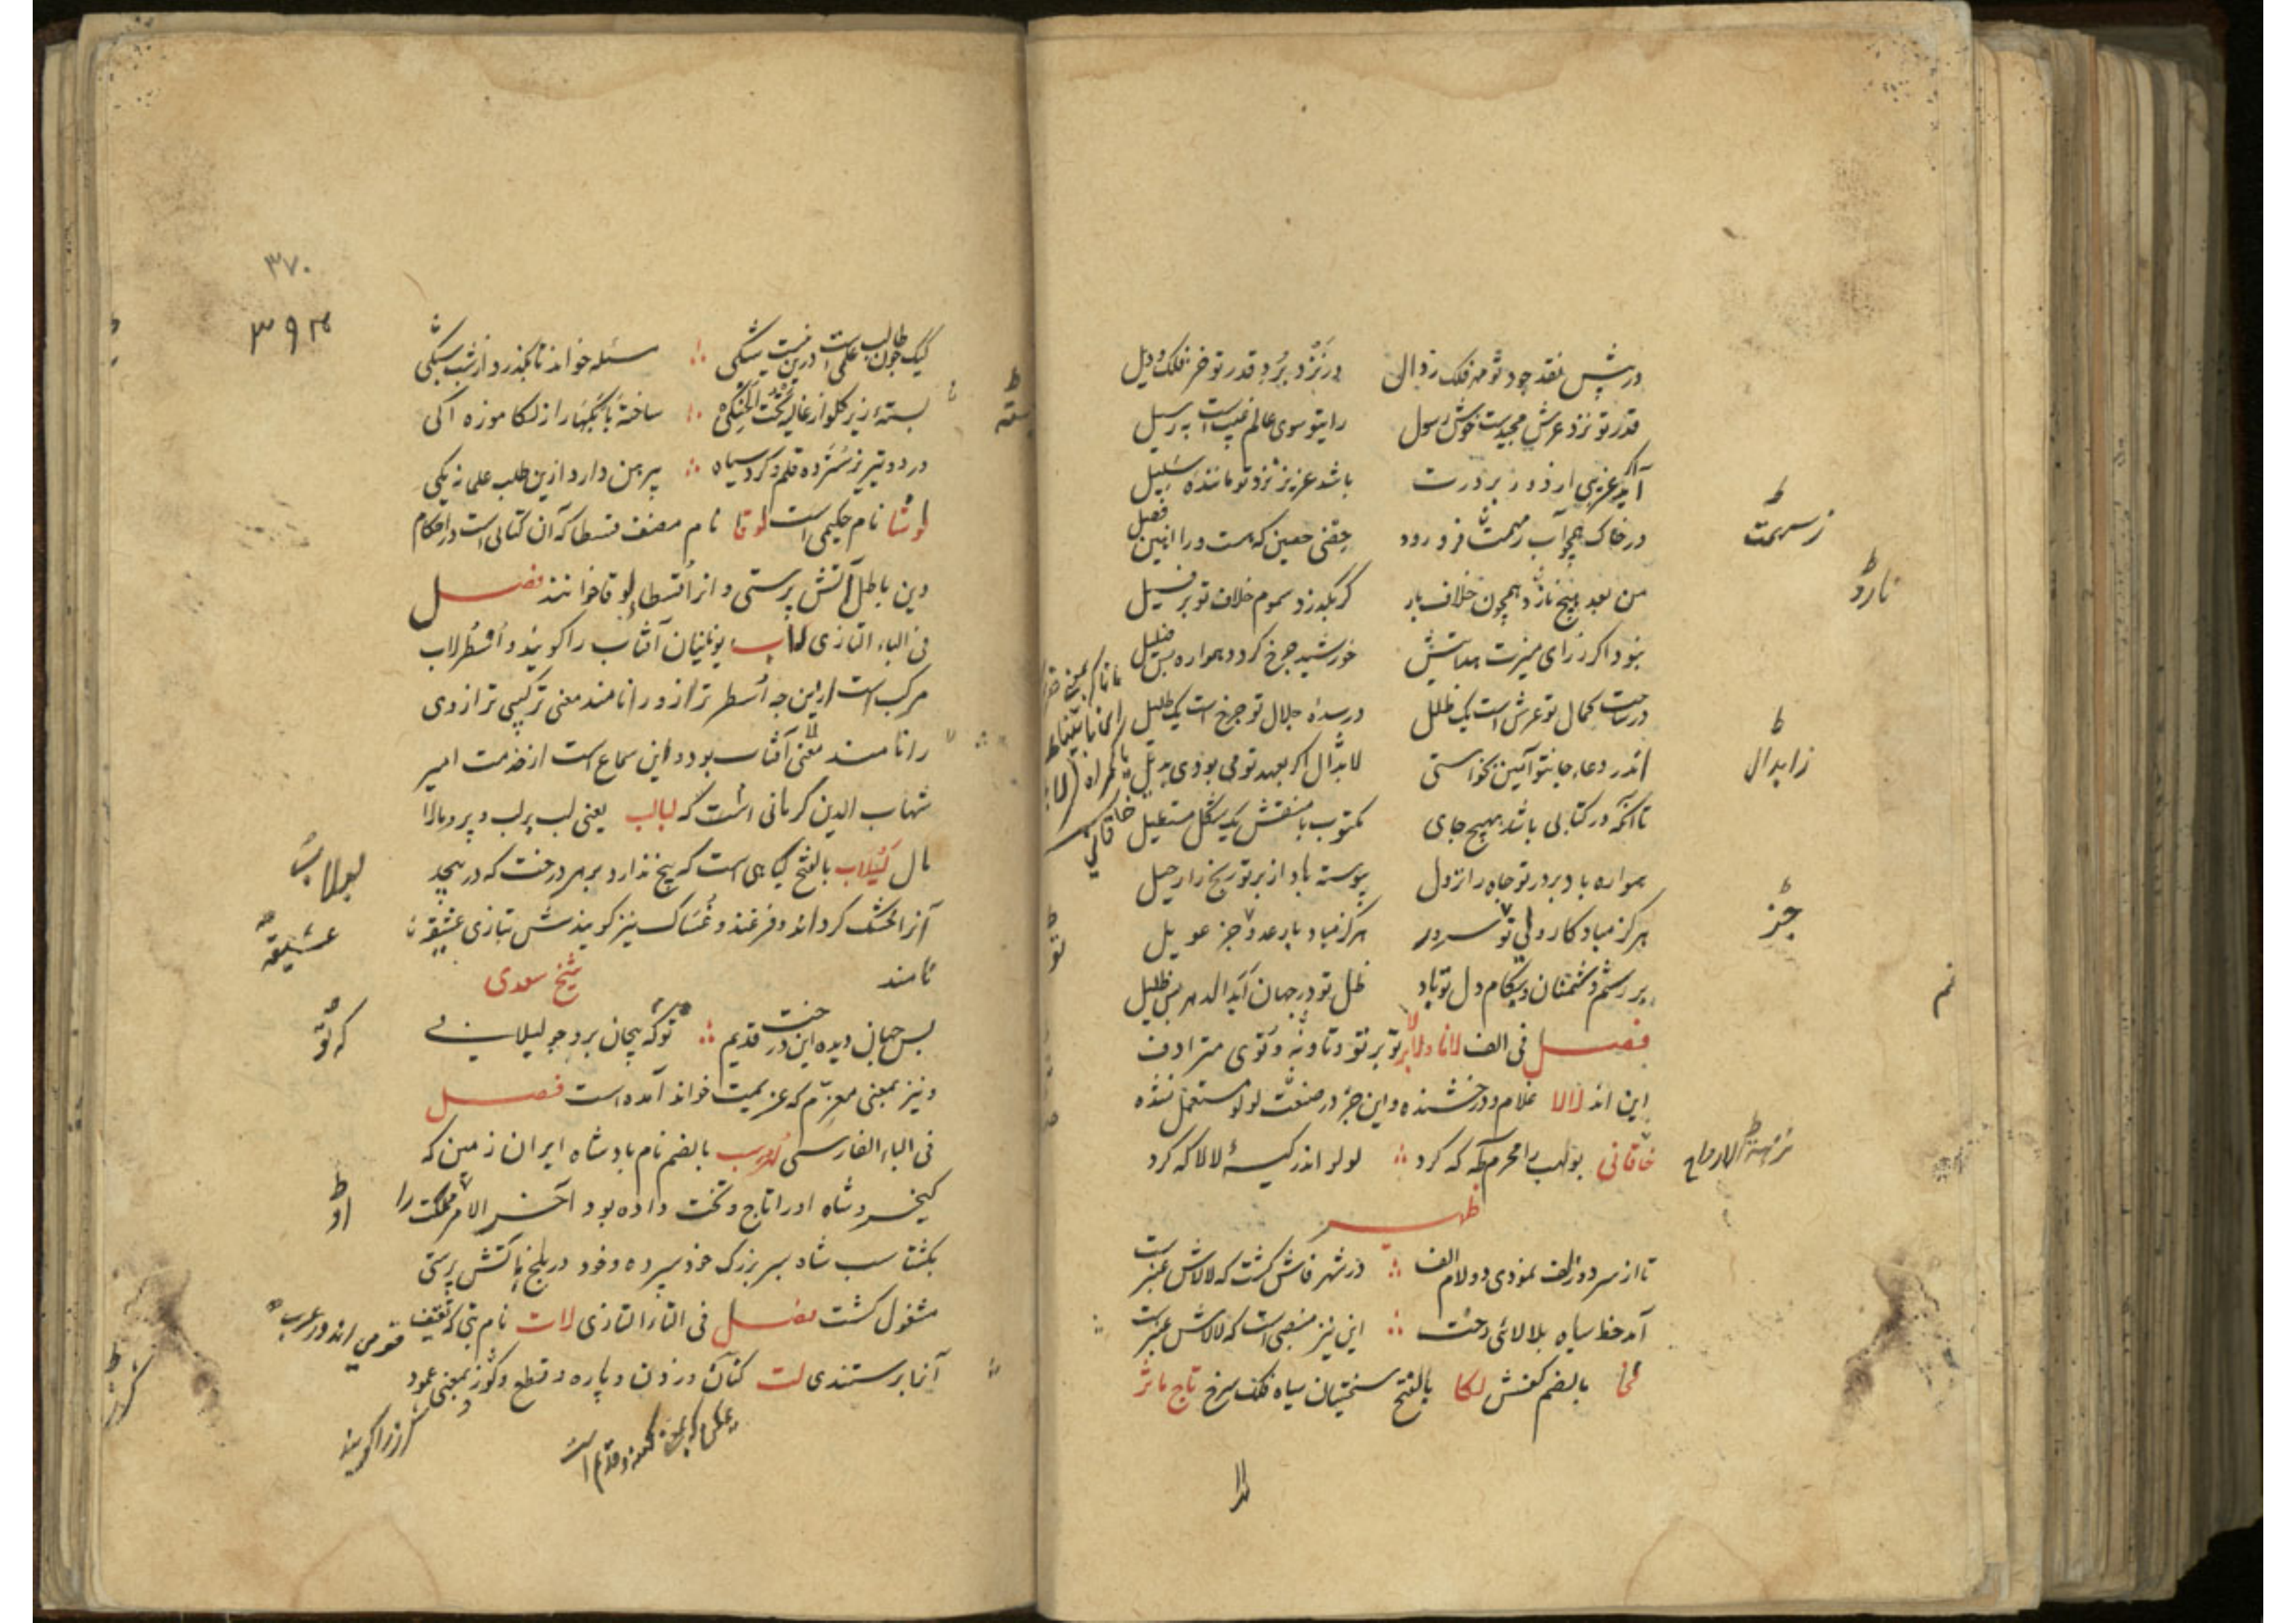 در پیش نقد جود تو مه فلک زوال در نزد برد قدر تو خر فلک ویل
قدر تو نزد عرش مجیدست خوش رسول رایتو سوی عالم غیب است پر رسیل
آید عزیزی ار ز در بر درت باشد عزیز نزد تو مانندهٔ سلیل
در خاک همچو آب ز مهمت فرو رود حقنی حصین که هست ورا این فصیل
من بعد بیخ نازد همچون خلاف بار گر بگذرد سموم خلاف تو بر فسیل
نبود اگر ز رای منیرت هدایتش خورشید چرخ گردد همواره بس ضلیل
در ساحت کمال تو عرش است یک ظلل در سدهٔ جلال تو چرخ است یک ظلیل
اندر دعاء جانتو آمین نخواستی لابدال اگر بعهد تو می بودی بدیل
تا آنکه در کتابی باشد بهیچ جای مکتوب با منقش یک شکل مستعیل
همواره باد بر در تو جاه را نزول پیوسته باد از بر تو رنج را رحیل
هرگز مباد کار ولی تو سرور هرگز مباد یار عدو جز عویل
بر رسم دشمنان و بکام دل تو باد ظل تو در جهان ابد الدهر بس ظلیل
فصل فی الف لانا ولابر تو بر تو و تا و نه و توی مترادف
این اند لالا غلام و درخشنده و این جز در صنعت لولو مستعمل نشده
خاقانی بولهب را محرم مکه که کرد لولو اندر کیسهٔ لالا که کرد
ظهیر
تا از سر دو زلف نمودی دو لام الف در شهر فاش گشت که لالاش عنبرست
آمد خط سیاه بلالائی رخت این نیز منصبی است که لالاش عنبرست
بالضم کفش لکا بالفتح سختیان سیاه فلک سرخ تاج ماثر
زسهمت
نارد
زابدال
جز
نم
نزهة الارواح
لدا
۳۷۰
۳۹۴
کیک چون طالب علمی است درین نیست شکی مسئله خواند تا بگذرد از شب یکی
بسته زیر گلو از غالیه تحت الحنکی ساخته پایگهها را از لکا موزه آکی
در دو تیریز سترده قلم و کرد سیاه پیرهن دارد ازین طلب علمی نه یکی
لوشا نام حکیمی است لوقا نام مصنف قسطا که آن کتابی است در احکام
دین باطل آتش پرستی و انرا قسطاء لوقا خوانند فصل
فی الباء التازی لاب یونانیان آفتاب را گویند و اسطرلاب
مرکب است ازین چه اسطر ترازو را نامند معنی ترکیبی ترازوی
را نامند معنی آفتاب بود و این سماع است از خدمت امیر
شهاب الدین کرمانی است که لبالب یعنی لب بر لب و پر و مالا
مال لبلاب بالفتح گیاهی است که بیخ ندارد بر هر درخت که در پیچد
آنرا خشک گرداند و فرغند و غساک نیز گویندش بتازی عشیقه
نامند شیخ سعدی
بس جهان دیده این درخت قدیم تو که پیچان برو چو لبلابی
و نیز بمعنی معزم که عزیمت خواند آمده است فصل
فی الباء الفارسی لهرسب بالضم نام بادشاه ایران زمین که
کیخسرو شاه او را تاج و تخت داده بود آخر الامر مملکت را
بکشتاسب شاه پسر بزرگ خود سپرده و خود در بلخ باتش پرستی
مشغول گشت فصل فی التاء التازی لات نام بتی که ثقیف قومی اند در عرب
آنرا پرستندی لت کتان و زدن و پاره و قطع و گرز بمعنی عمود
گرز را گویند
لبلاب
عشیقه
که تو
او